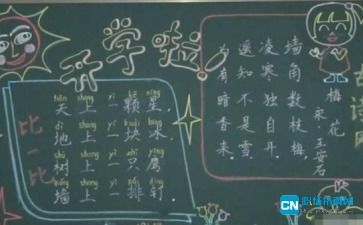 开学啦!
比一比
tiān shang yì kē xīng
天上一颗星.
dì shang yì kuài bīng
地上一块冰.
shù shang yì zhī yīng
树上一只鹰
qiáng shang yì pái dīng
墙上一排钉.
梅花
宋.王安石
墙角数枝梅
凌寒独自开
遥知不是雪
为有暗香来
CN